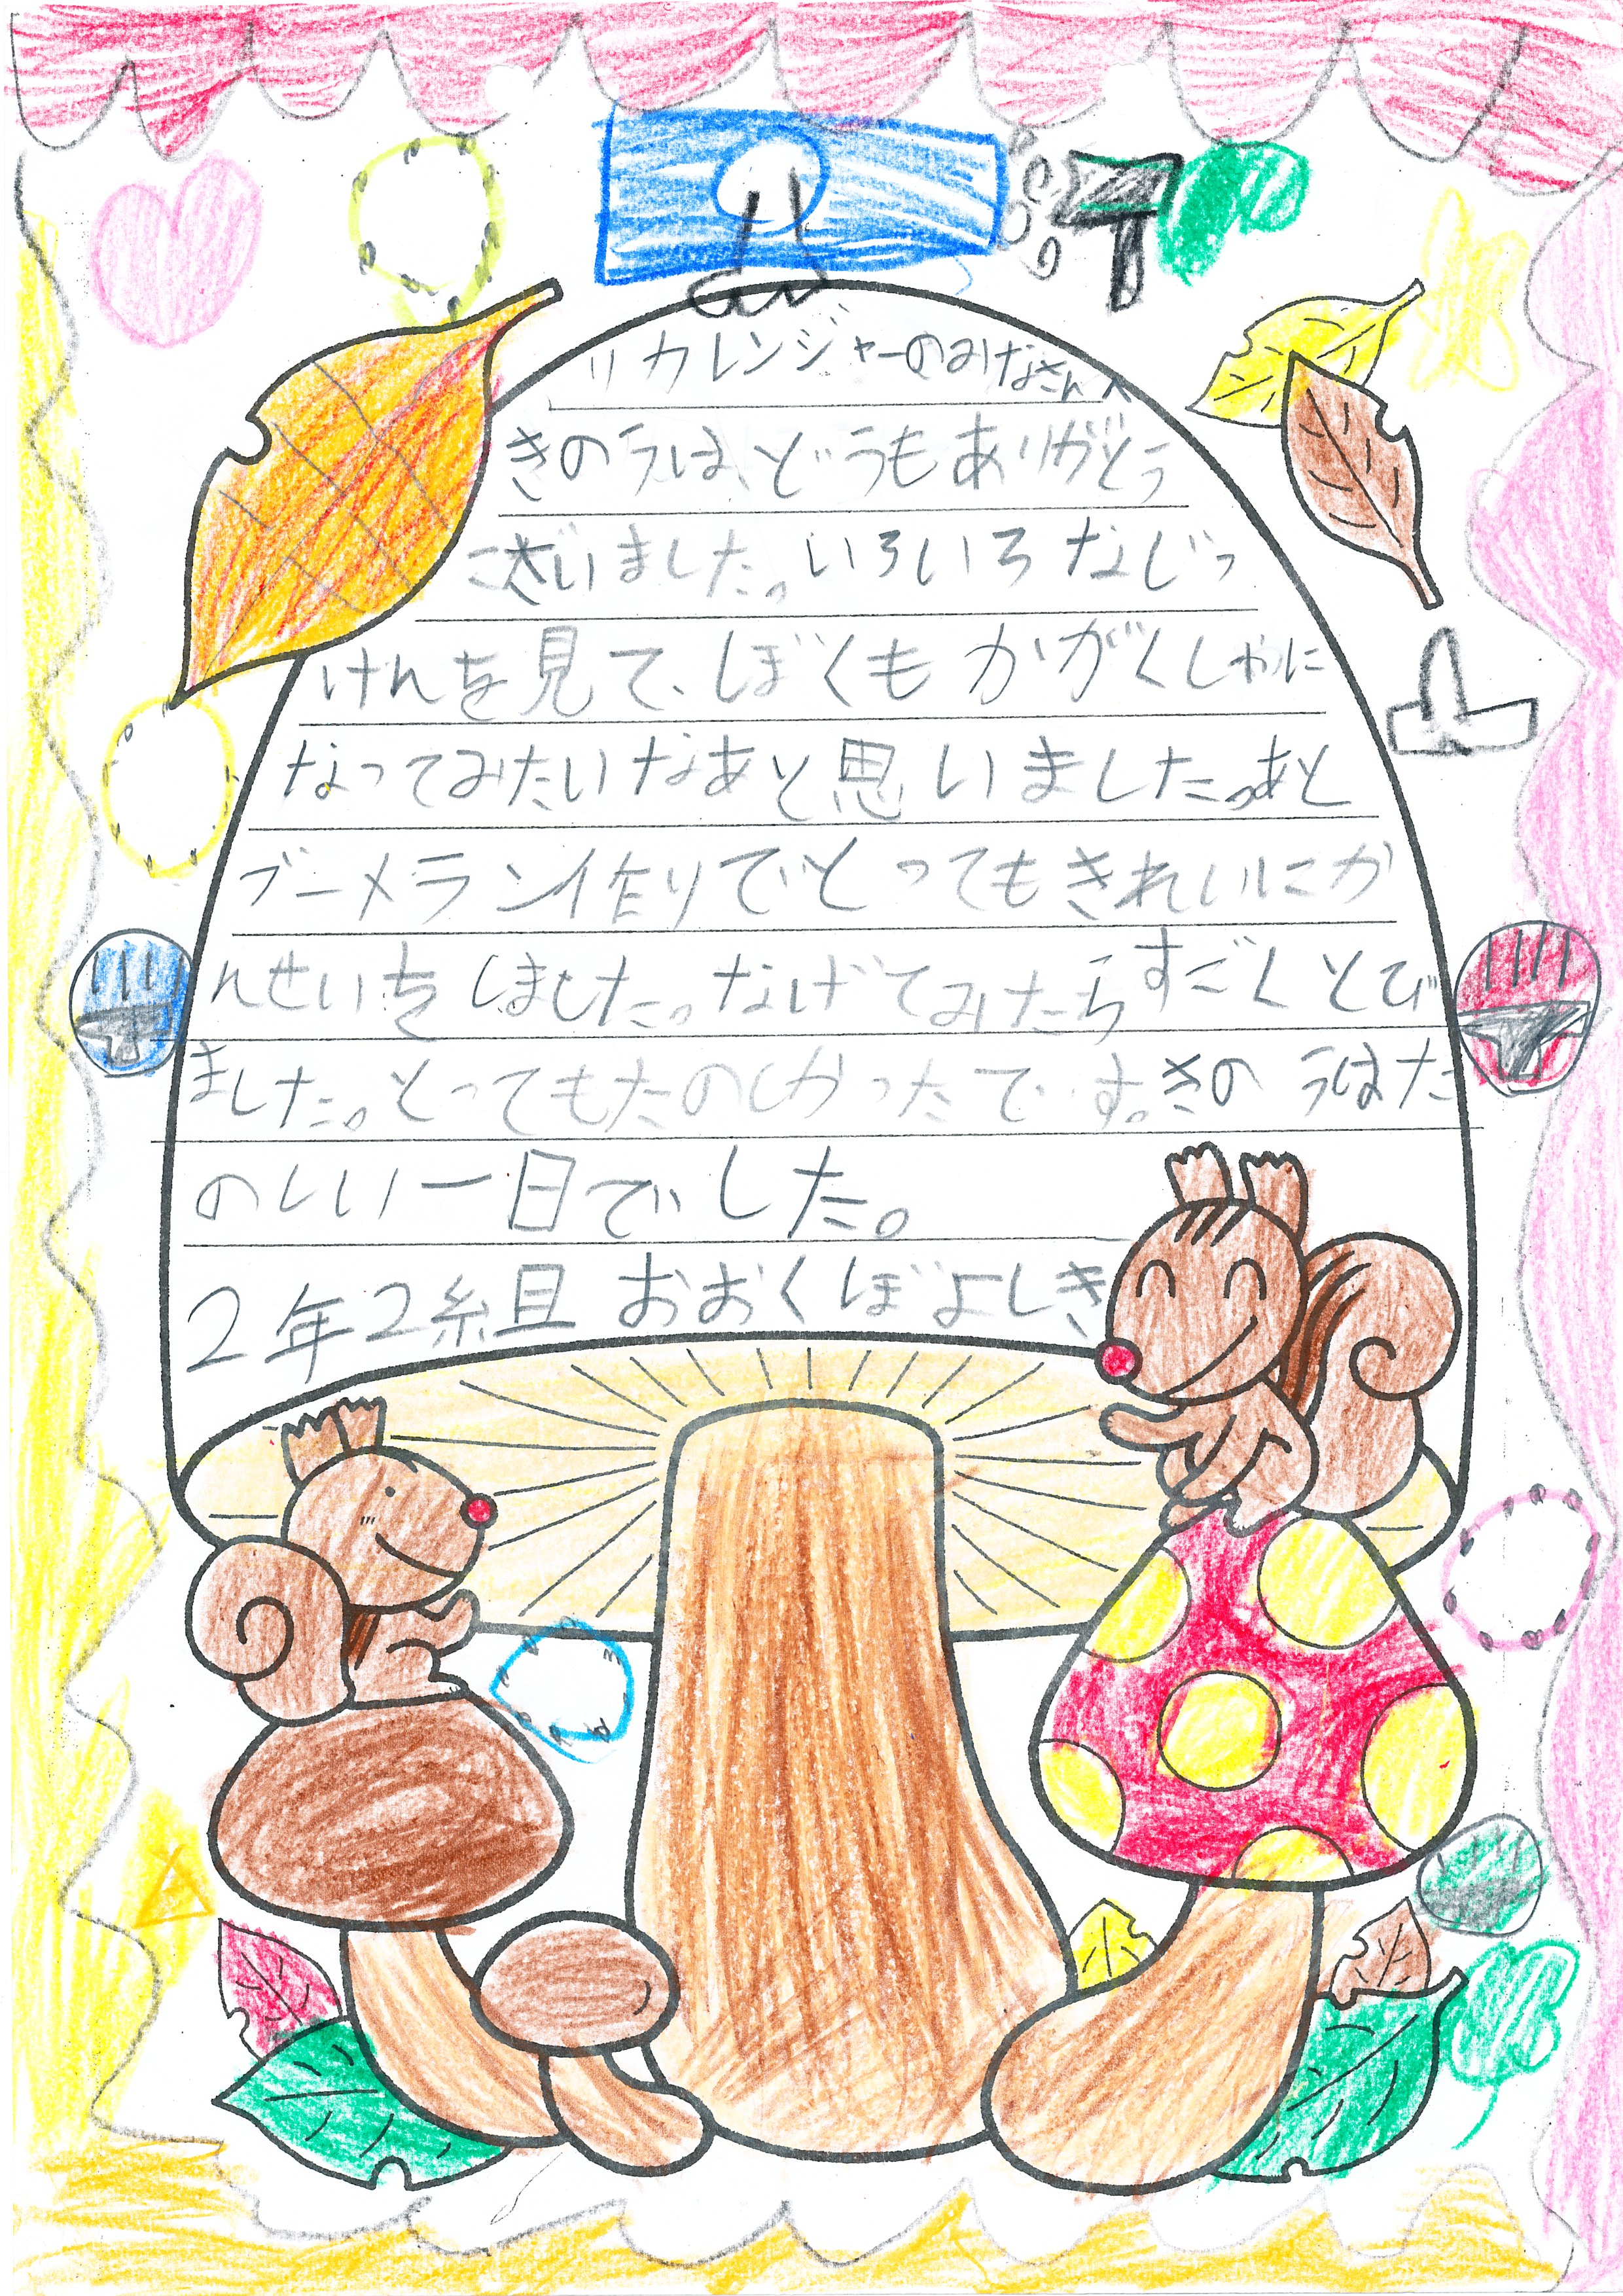 リカレンジャーのみなさんへ
きのうは、どうもありがとう
ございました。いろいろなじっ
けんを見て、ぼくもかがくしゃに
なってみたいなあと思いました。あと
ブーメラン作りでとってもきれいにか
んせいをしました。なげてみたらすごくとび
ました。とってもたのしかったです。きのうはた
のしい一日でした。
2年2組おおくぼよしき